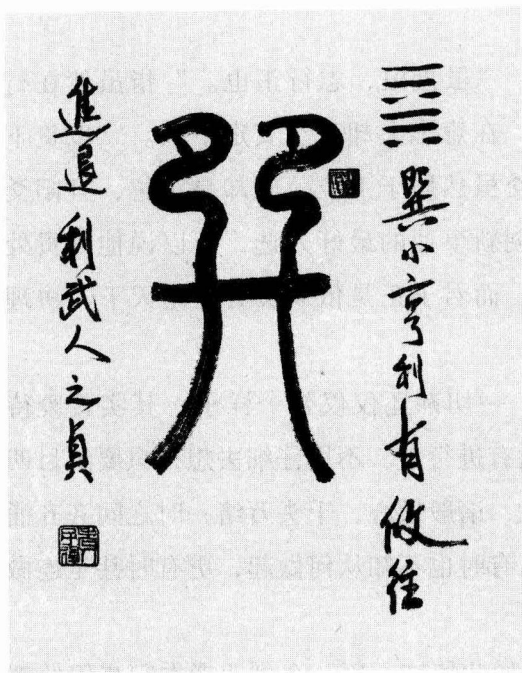 ䷸巽小亨利有攸往
巽
進退利武人之貞